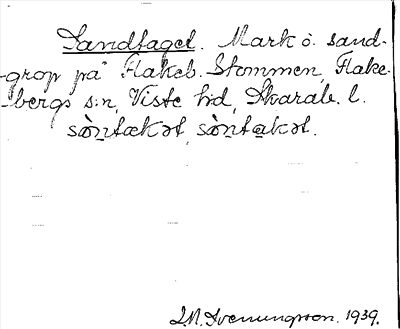 Sandtaget. Mark o. sand-
-grop på Flakeb. Stommen, Flake-
-bergs s:n, Viste hd, Skarab. l.
sòntækət, sòntækət.
J.N. Svenungsson. 1939.